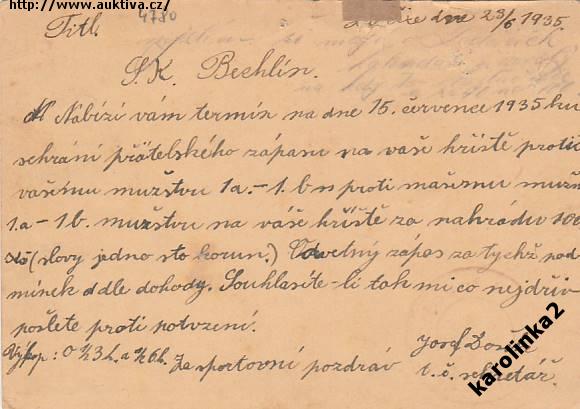 http://www.auktiva.cz/
4780
dne 23/6 1935.
Titl.
S. K. Bechlín.
Nabízí vám termín na dne 15. července 1935 ku
sehrání přátelského zápasu na vaše hřiště proti
vašemu mužstvu 1a. - 1. b n proti mašemu mužs
1. a - 1 b. mužstvu na váše hřiště za nahrádu 100
Kč (slovy jedno sto korun.) Odvetný zápas za tychž pod
mínek d dle dohody. Souhlasíte-li tak mi co nejdřív
pošlete proti potvzení.
Výkop: o ½3 h. a ½6 h. Za sportovní pozdráv
Josef
t. č. sekretář.
karolinka2